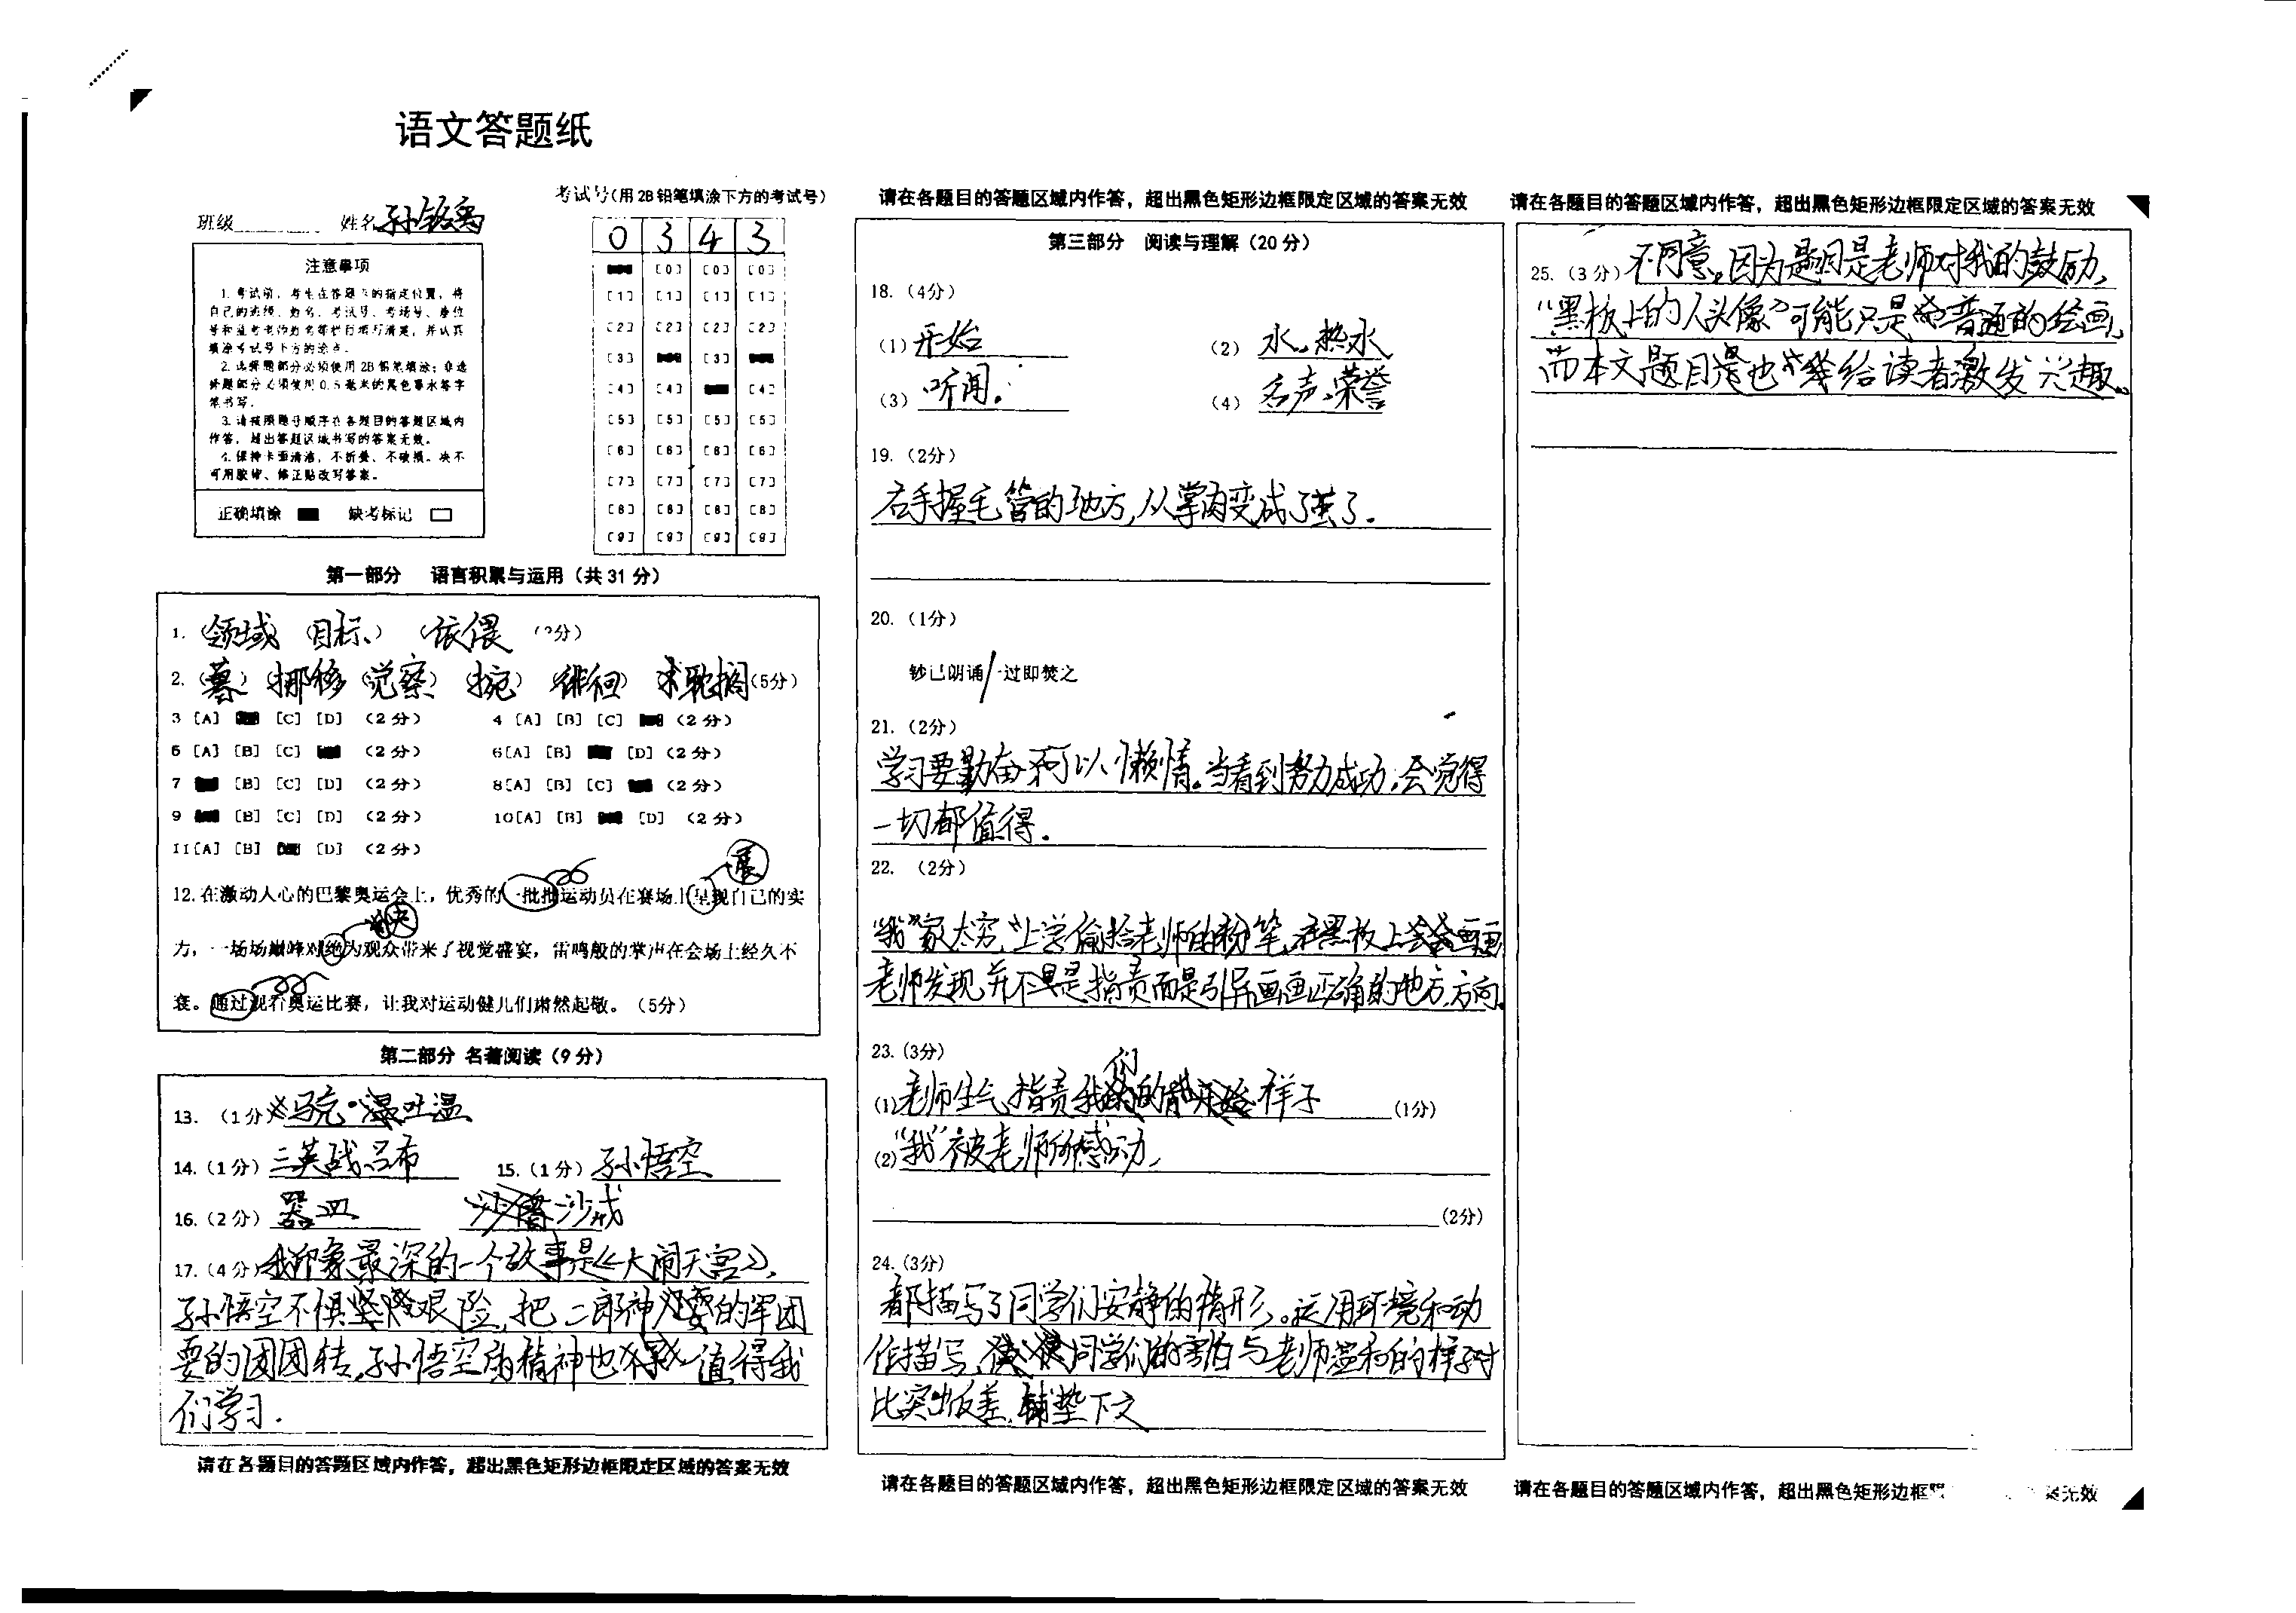 语文答题纸
班级 姓名 孙
考试号(用 2B 铅笔填涂下方的考试号)
0 3 4 3
注意事项
1. 考试前，考生在答题卡的指定位置，将
自己的班级、姓名、考试号、考场号、座位
号和监考老师姓名等栏目填写清楚，并认真
填涂考试号下方的涂点。
2. 选择题部分必须使用 2B 铅笔填涂；非选
择题部分必须使用 0.5 毫米的黑色墨水签字
笔书写。
3. 请按照题号顺序在各题目的答题区域内
作答，超出答题区域书写的答案无效。
4. 保持卡面清洁，不折叠、不破损。决不
可用胶带、修正贴改写答案。
正确填涂 缺考标记
[0] [0] [0]
[1] [1] [1] [1]
[2] [2] [2] [2]
[3] [3]
[4] [4] [4]
[5] [5] [5] [5]
[6] [6] [6] [6]
[7] [7] [7] [7]
[8] [8] [8] [8]
[9] [9] [9] [9]
第一部分 语言积累与运用（共 31 分）
1. (领域) (目标) (依偎) (3分)
2. (暮) (挪移) (觉察) (掩) (徘徊) 耽搁 (5分)
3 [A] [C] [D] (2 分) 4 [A] [B] [C] (2 分)
5 [A] [B] [C] (2 分) 6 [A] [B] [D] (2 分)
7 [B] [C] [D] (2 分) 8 [A] [B] [C] (2 分)
9 [B] [C] [D] (2 分) 10 [A] [B] [D] (2 分)
11 [A] [B] [D] (2 分)
展
12. 在激动人心的巴黎奥运会上，优秀的一批批运动员在赛场上呈现自己的实
决
力，一场场巅峰对绝为观众带来了视觉盛宴，雷鸣般的掌声在会场上经久不
衰。通过观看奥运比赛，让我对运动健儿们肃然起敬。（5分）
第二部分 名著阅读（9 分）
13. (1 分) 马克·温吐温
14. (1 分) 三英战吕布 15. (1 分) 孙悟空
16. (2 分) 器皿 沙戒
17. (4 分) 我印象最深的一个故事是《大闹天宫》,
孙悟空不惧艰险,把二郎神的军团
耍的团团转,孙悟空的精神也值得我
们学习.
请在各题目的答题区域内作答，超出黑色矩形边框限定区域的答案无效
请在各题目的答题区域内作答，超出黑色矩形边框限定区域的答案无效
第三部分 阅读与理解（20 分）
18. (4分)
(1) 开始 (2) 水。热水
(3) 听闻. (4) 名声.荣誉
19. (2分)
右手握毛管的地方,从掌肉变成了茧了.
20. (1分)
钞已朗诵/一过即焚之
21. (2分)
学习要勤奋不可以懒惰。当看到努力成功,会觉得
一切都值得.
22. (2分)
“我”家太穷,上学偷拾老师的粉笔,在黑板上画画
老师发现并不是指责而是引导画画正确的地方.方向.
23. (3分)
(1) 老师生气,指责我们的样子 (1分)
(2) “我”被老师所感动,
(2分)
24. (3分)
都描写了同学们安静的情形。运用环境和动
作描写,同学们的害怕与老师温和的样子对
比突出反差,铺垫下文
请在各题目的答题区域内作答，超出黑色矩形边框限定区域的答案无效
请在各题目的答题区域内作答，超出黑色矩形边框限定区域的答案无效
25. (3 分) 不同意。因为题目是老师对我的鼓励,
“黑板上的人头像”可能只是普通的绘画,
而本文题目是也给读者激发兴趣。
请在各题目的答题区域内作答，超出黑色矩形边框 案无效